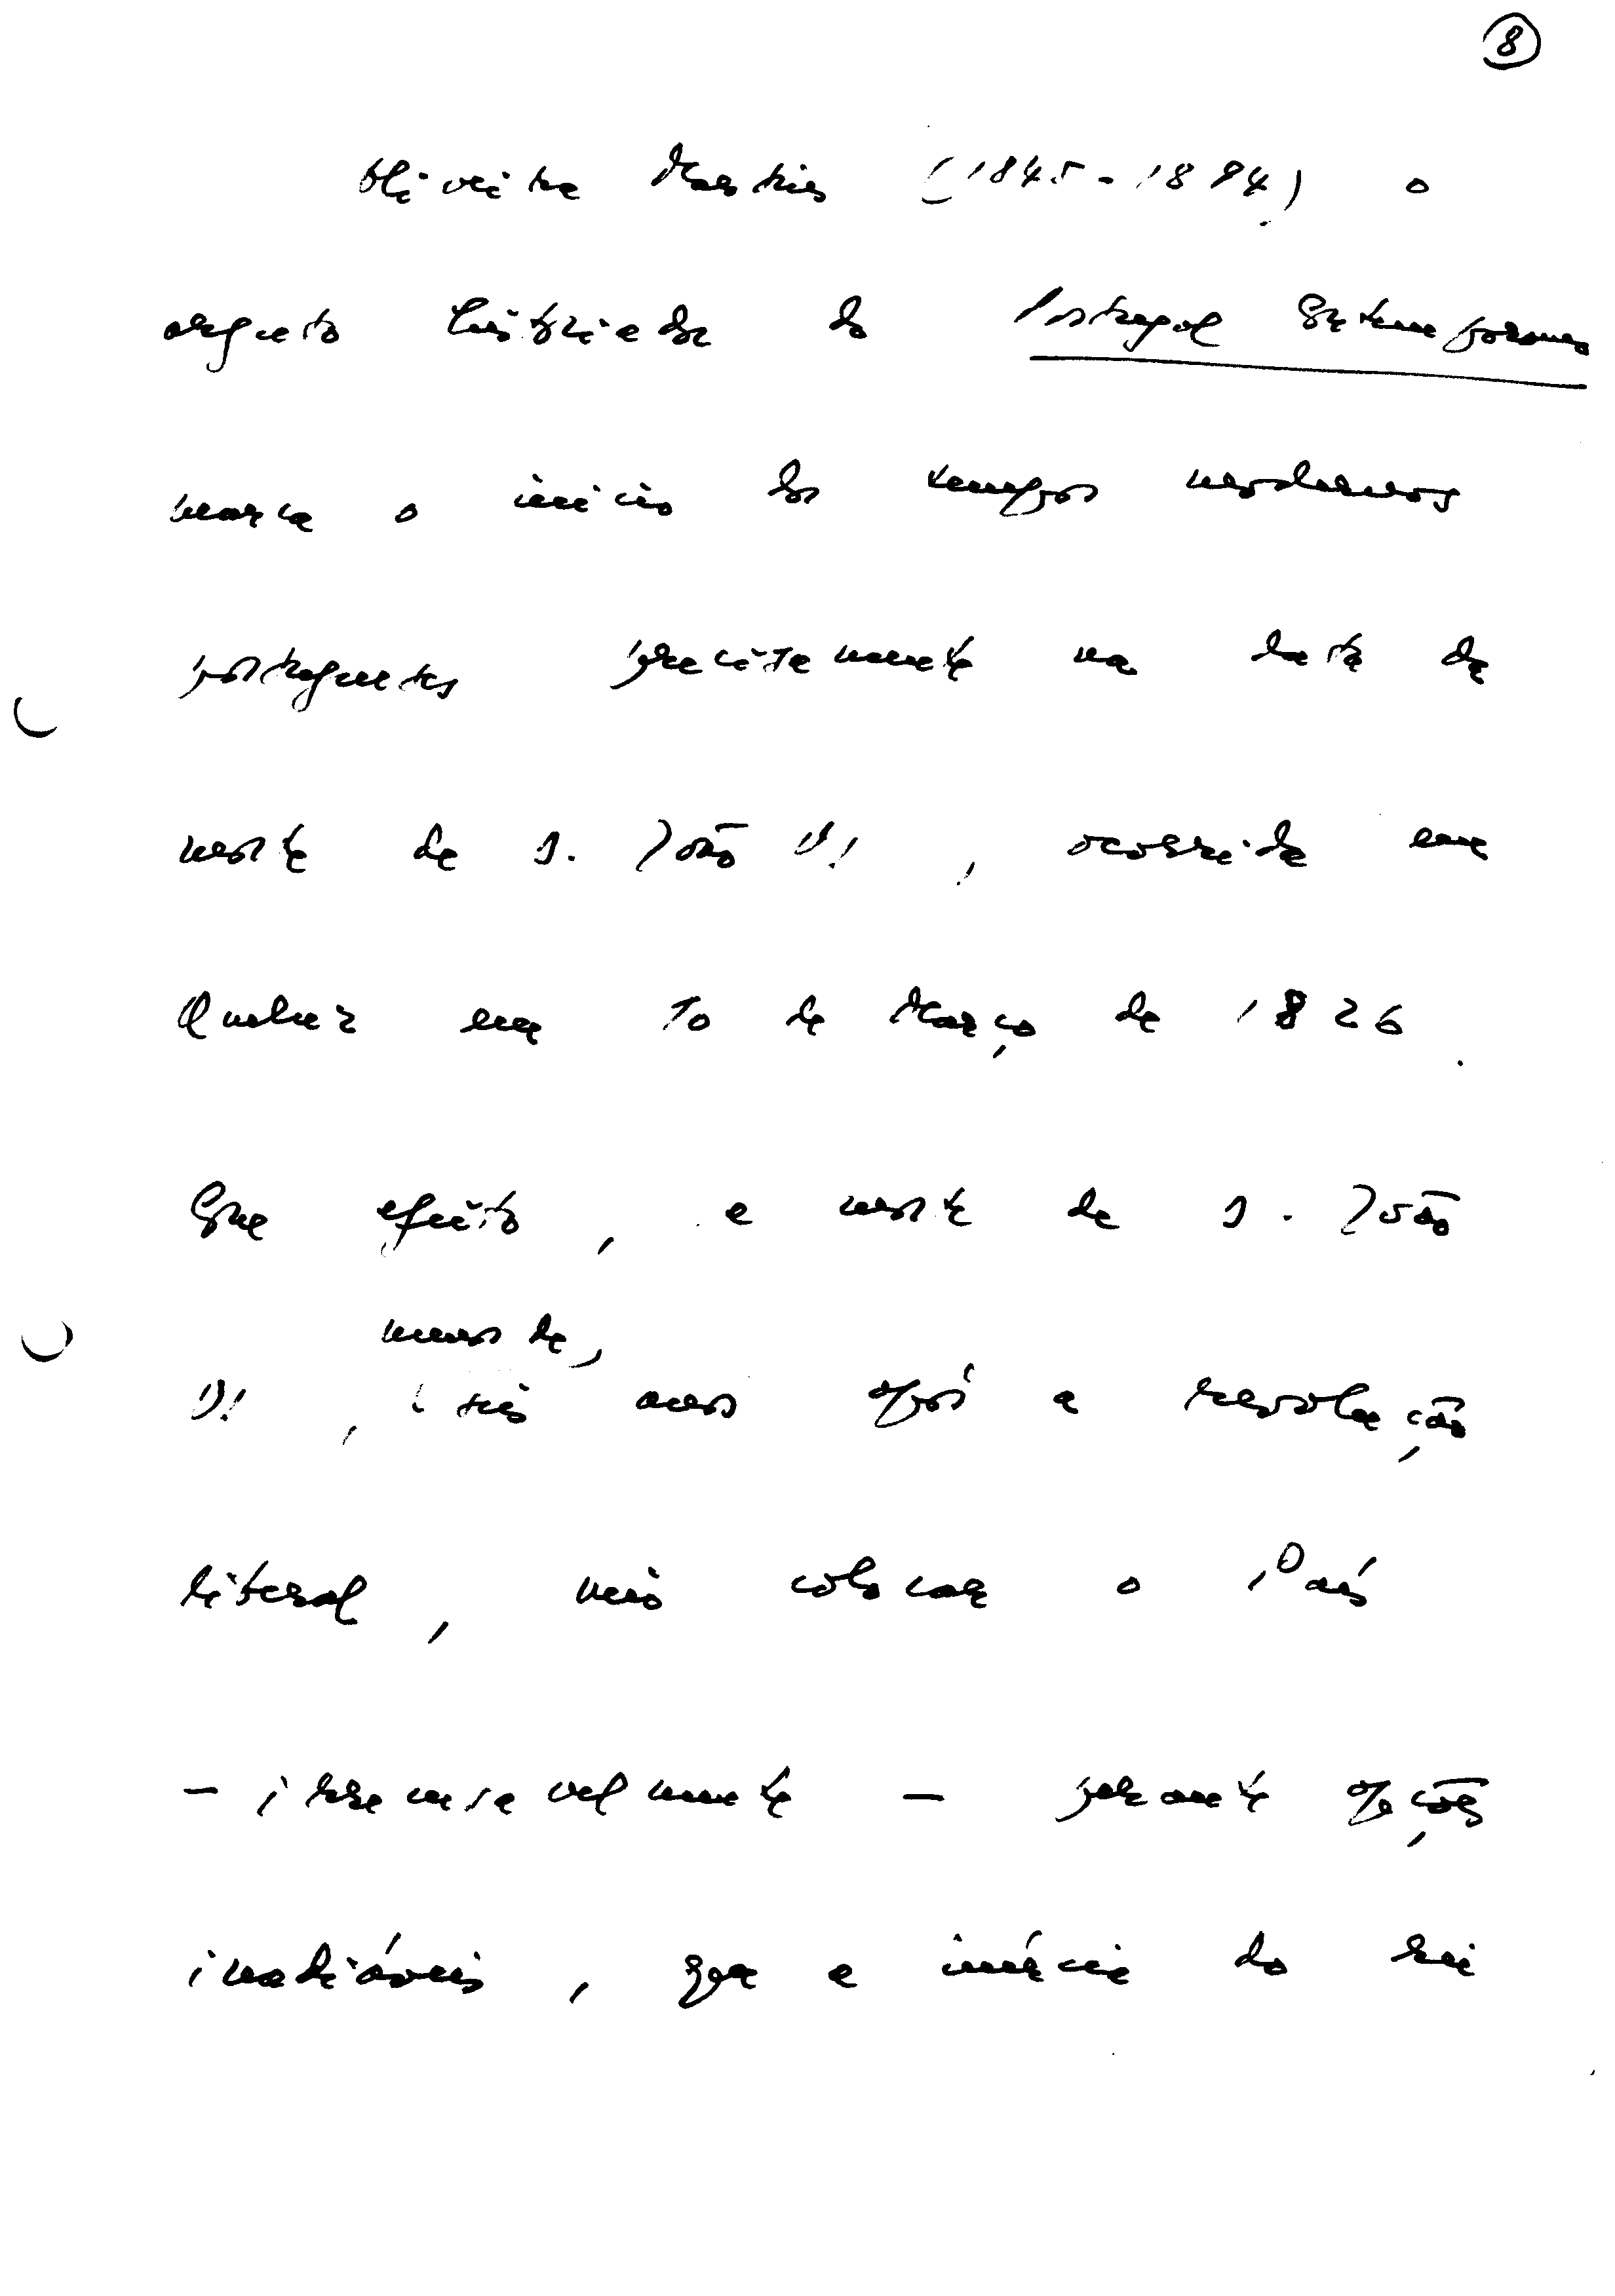 8
Oliveira Martins (1845-1894) o
arguto historiador do Portugal Contemporâneo
marca o início dos tempos modernos
portugueses precisamente na data da
morte de D. João VI, ocorrida em
Queluz em 10 de Março de 1826.
Com efeito, a morte de D. João
VI, seis anos após a revolução
liberal, veio colocar o País
- irremissivelmente - perante opções
inadiáveis, que a inércia do rei